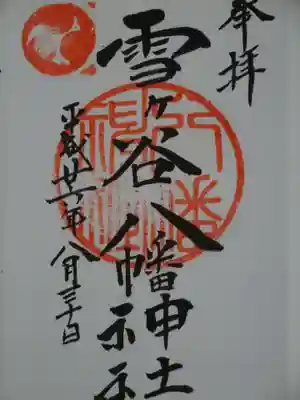 奉拝
雪ヶ谷八幡神社
平成廿六年八月三十日